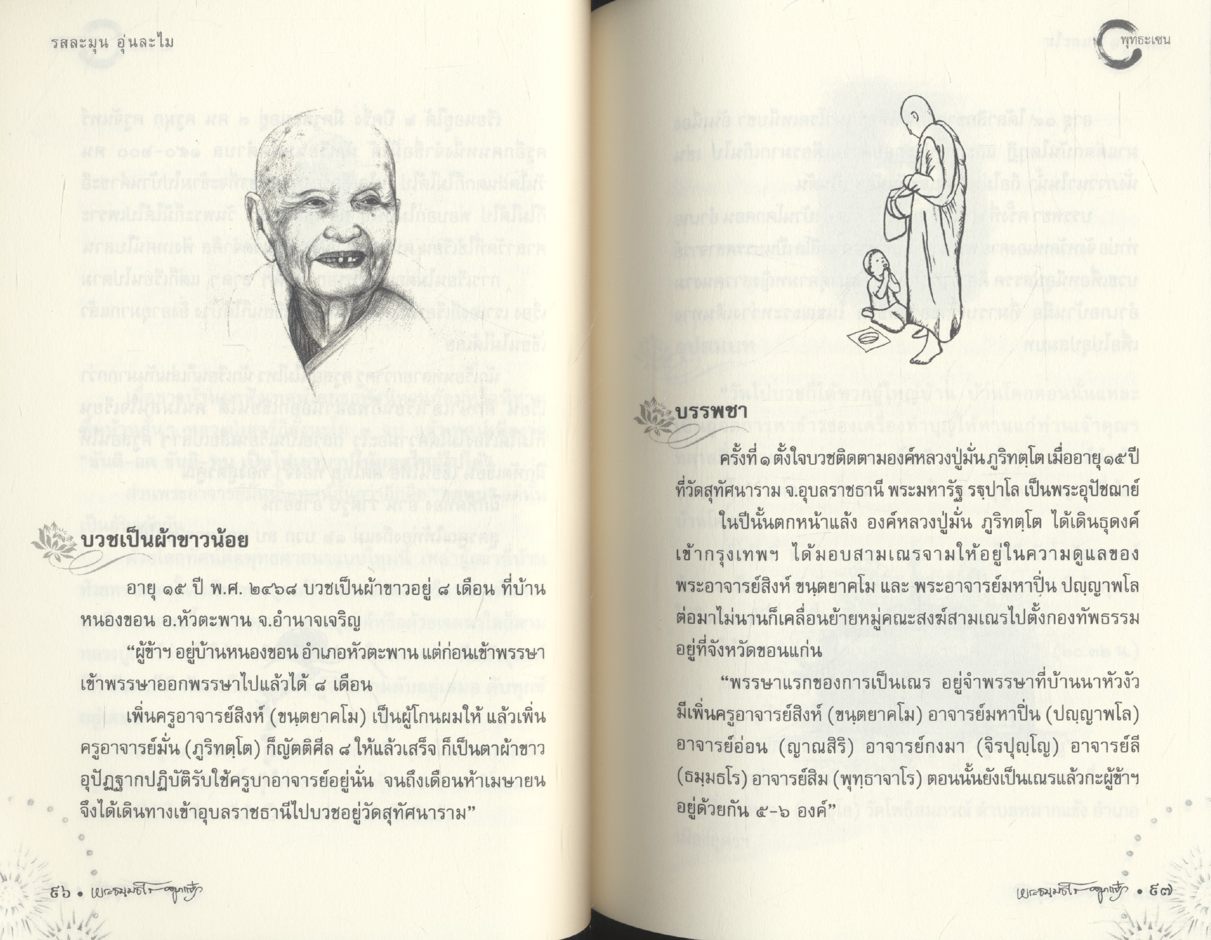 รสละมุน อุ่นละไม
บวชเป็นผ้าขาวน้อย
อายุ ๑๕ ปี พ.ศ. ๒๔๖๘ บวชเป็นผ้าขาวอยู่ ๘ เดือน ที่บ้าน
หนองขอน อ.หัวตะพาน จ.อำนาจเจริญ
“ผู้ข้าฯ อยู่บ้านหนองขอน อำเภอหัวตะพาน แต่ก่อนเข้าพรรษา
เข้าพรรษาออกพรรษาไปแล้วได้ ๘ เดือน
เพิ่นครูอาจารย์สิงห์ (ขนฺตยาคโม) เป็นผู้โกนผมให้ แล้วเพิ่น
ครูอาจารย์มั่น (ภูริทตฺโต) ก็ญัตติศีล ๘ ให้แล้วเสร็จ ก็เป็นตาผ้าขาว
อุปัฏฐากปฏิบัติรับใช้ครูบาอาจารย์อยู่นั่น จนถึงเดือนห้าเมษายน
จึงได้เดินทางเข้าอุบลราชธานีไปบวชอยู่วัดสุทัศนาราม”
๙๖ •
พุทธะเซน
บรรพชา
ครั้งที่ ๑ ตั้งใจบวชติดตามองค์หลวงปู่มั่น ภูริทตฺโต เมื่ออายุ ๑๕ ปี
ที่วัดสุทัศนาราม จ.อุบลราชธานี พระมหารัฐ รฏฺปาโล เป็นพระอุปัชฌาย์
ในปีนั้นตกหน้าแล้ง องค์หลวงปู่มั่น ภูริทตฺโต ได้เดินธุดงค์
เข้ากรุงเทพฯ ได้มอบสามเณรจามให้อยู่ในความดูแลของ
พระอาจารย์สิงห์ ขนฺตยาคโม และ พระอาจารย์มหาปิ่น ปญฺญาพโล
ต่อมาไม่นานก็เคลื่อนย้ายหมู่คณะสงฆ์สามเณรไปตั้งกองทัพธรรม
อยู่ที่จังหวัดขอนแก่น
“พรรษาแรกของการเป็นเณร อยู่จำพรรษาที่บ้านนาหัวงัว
มีเพิ่นครูอาจารย์สิงห์ (ขนฺตยาคโม) อาจารย์มหาปิ่น (ปญฺญาพโล)
อาจารย์อ่อน (ญาณสิริ) อาจารย์กงมา (จิรปุญฺโญ) อาจารย์ลี
(ธมฺมธโร) อาจารย์สิม (พุทฺธาจาโร) ตอนนั้นยังเป็นเณรแล้วกะผู้ข้าฯ
อยู่ด้วยกัน ๕-๖ องค์”
• ๙๗